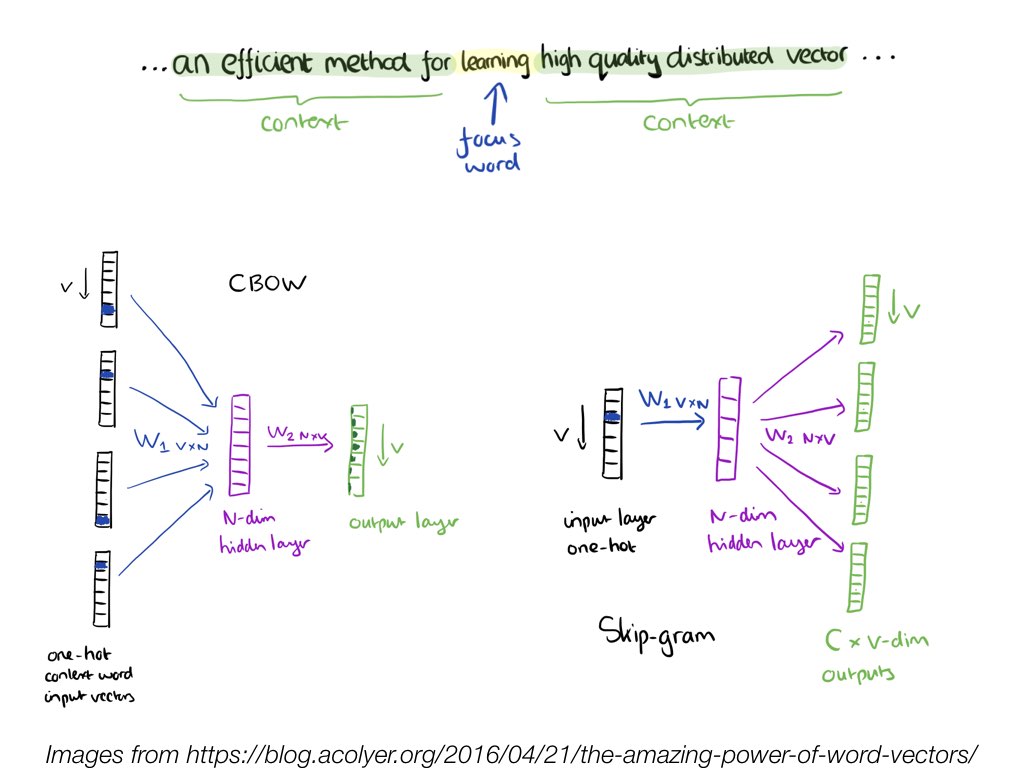 ...an efficient method for learning high quality distributed vector ...
context
context
focus
word
CBOW
V
W1 V×N
W2 N×V
V
N-dim
hidden layer
output layer
one-hot
context word
input vectors
V
W1 V×N
W2 N×V
V
input layer
one-hot
N-dim
hidden layer
Skip-gram
C × V-dim
outputs
Images from https://blog.acolyer.org/2016/04/21/the-amazing-power-of-word-vectors/